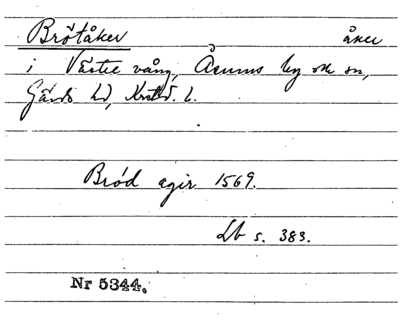 Brötåker åker
i Västre vång, Åsums by ok sn,
Gärds hd, Krist. l.
Bród agir 1569.
Lb s. 383.
Nr 5344.